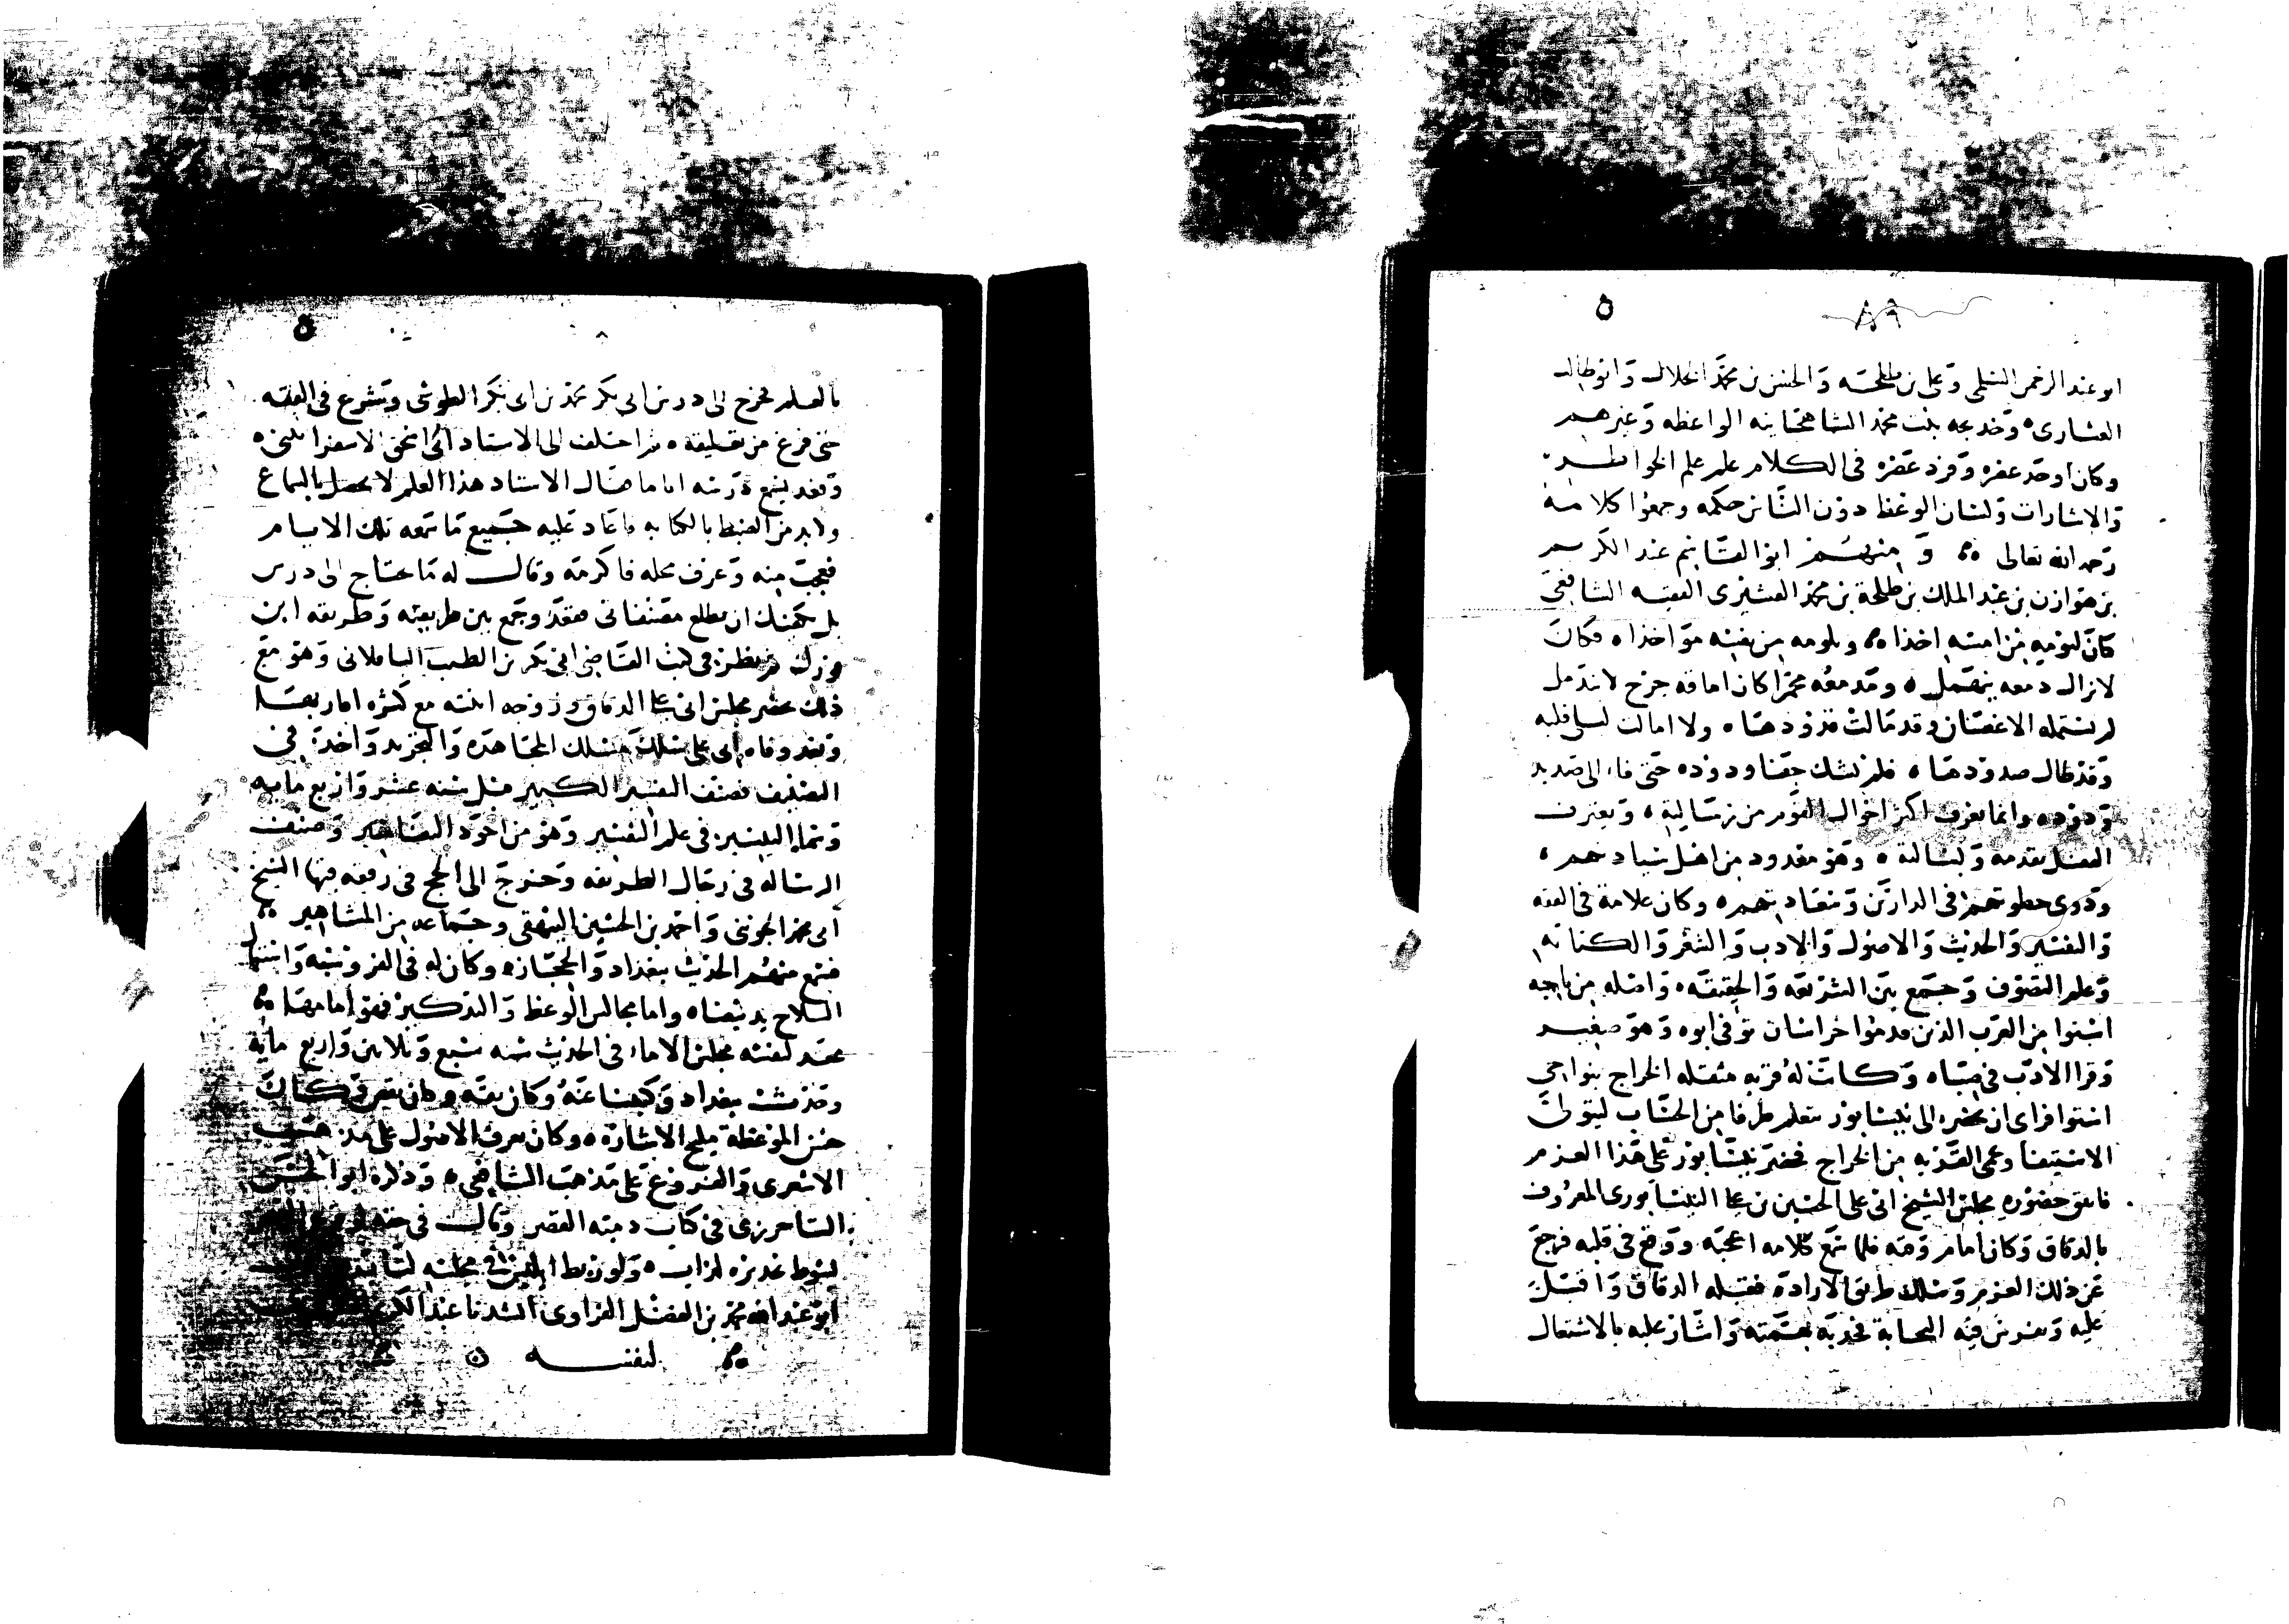 ٨٩
ابو عبد الرحمن السلمى وعلى بن طلحة والحسن بن محمد الخلال وابو طالب
العشارى وخديجه بنت محمد الشاهجانيه الواعظه وغيرهم
وكان اوحد عصره وفرد عصره فى الكلام على علم الخواطر
والاشارات ولسان الوعظ دون الناس حكمه وجمعوا كلامه
رحمه الله تعالى ومنهم ابو القاسم عبد الكريم
بن هوازن بن عبد الملك بن طلحة بن محمد القشيرى الفقيه الشافعى
كان ليوميه من امسه اخذا ويلومه من نفسه مواخذا فكان
لا يزال دمعه ينهمل وقدمعه محمرا كان اماقه جرح لا يندمل
لم تستمله الاغصان وقد مالت قدودها ولا امالت لسلى قلبه
وقد طال صدودها فلم يشك جفنا ودوده حتى فاء الى صديد
ودوده وانما يعرف اكثر احوال القوم من رسالته ويعترف
الفضل بتقدمه ولسالته وهو معدود من اهل سيادتهم
وذوى حظوتهم فى الدارين وسعادتهم وكان علامة فى الفقه
والتفسير والحديث والاصول والادب والشعر والكتابه
وعلم التصوف وجمع بين الشريعة والحقيقة واصله من ناحيه
استوا من العرب الذين قدموا خراسان توفى ابوه وهو صغير
وقرا الادب فى صباه وكانت له قريه مثقله الخراج بنواحى
استوا فراى ان يحضره الى نيسابور يتعلم طرفا من الحساب ليتولى
الاستيفا ويحمى القريه من الخراج فحضر نيسابور على هذا العزم
فاتفق حضوره مجلس الشيخ ابى على الحسين بن على النيسابورى المعروف
بالدقاق وكان امام وقته فلما سمع كلامه اعجبه ووقع فى قلبه فرجع
عن ذلك العزم وسلك طريق الارادة فقبله الدقاق واقبل
عليه وتفرس فيه النجابة فجذبه بهمته واشار عليه بالاشتغال
بالعلم فخرج الى درس ابى بكر محمد بن ابى بكر الطوسى وشرع فى الفقه
حتى فرغ من تعليقه ثم اختلف الى الاستاد ابى اسحق الاسفراينى
وقعد يسمع درسه اياما فقال الاستاد هذا العلم لا يحصل بالسماع
ولا بد من الضبط بالكتابه فاعاد عليه جميع ما سمعه تلك الايام
فعجب منه وعرف محله فاكرمه وقال له ما تحتاج الى درس
بل يكفيك ان تطلع مصنفاتى فقعد وجمع بين طريقته وطريقه ابن
فورك ثم نظر فى كتب القاضى ابى بكر بن الطيب الباقلانى وهو مع
ذلك يحضر مجلس ابى على الدقاق وزوجه ابنته مع كثره اقاربها
وبعد وفاه ابى على سلك مسلك المجاهده والتجريد واخذ فى
التصنيف فصنف التفسير الكبير قبل سنه عشر واربع مايه
وسماه التيسير فى علم التفسير وهو من اجود التفاسير وصنف
الرساله فى رجال الطريقه وخرج الى الحج فى رفقه فيها الشيخ
ابى محمد الجوينى واحمد بن الحسين البيهقى وجماعه من المشاهير
فسمع منهم الحديث ببغداد والحجاز وكان له فى الفروسيه واستعمال
السلاح يد بيضاء واما مجالس الوعظ والتذكير فهو امامها
عقد لنفسه مجلس الاملا فى الحديث سنه سبع وثلاثين واربع مايه
وحدث ببغداد وكتبنا عنه وكان ثقه وكان يقص وكان
حسن الموعظة مليح الاشارة وكان يعرف الاصول على مذهب
الاشعرى والفروع على مذهب الشافعى وذكره ابو الحسن
الباخرزى فى كتاب دمية القصر وقال فى حقه
بسوط تحذيره لذاب ولو ربط ابليس فى مجلسه لتاب
ابو عبد الله محمد بن الفضل الفراوى انشدنا عبد الكريم
لنفسه